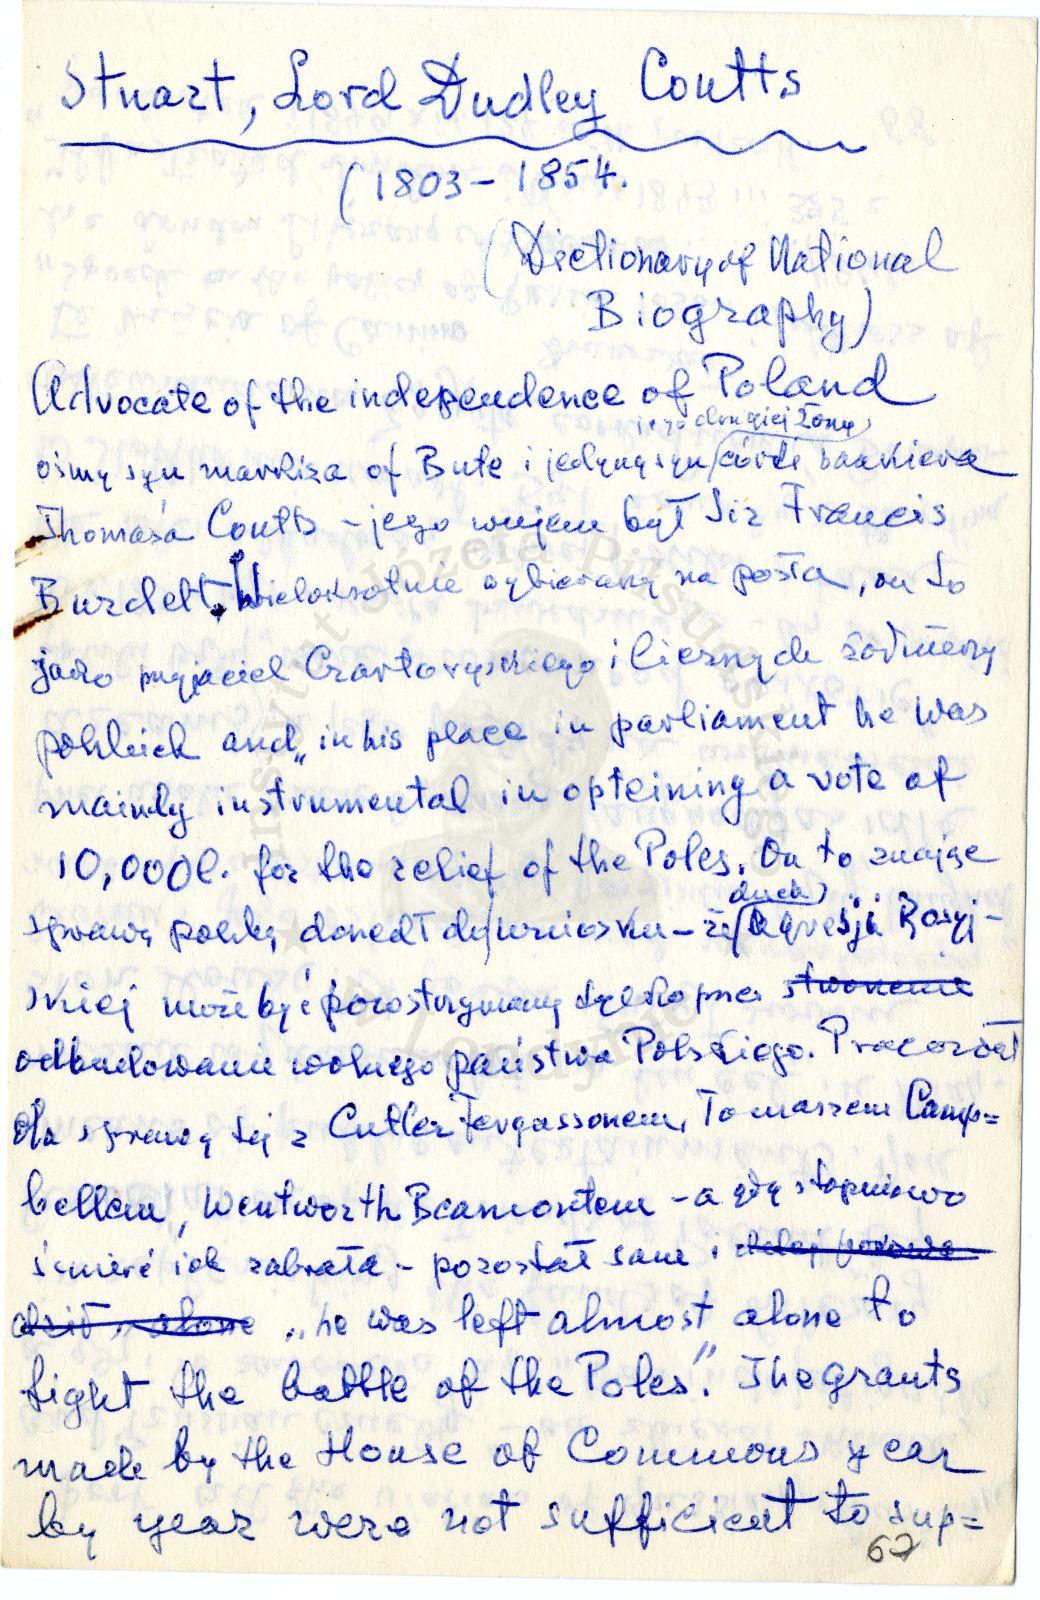 Stuart, Lord Dudley Coutts
(1803 - 1854.
(Dictionary of National
Biography)
Advocate of the independence of Poland
jego drugiej żony
ósmy syn markiza of Bute i jedyny syn córki bankiera
Thomasa Coutts - jego wujem był Sir Francis
Burdett. Wielokrotnie wybierany na posła, on to
jako przyjaciel Czartoryskiego i licznych żołnierzy
polskich and „in his place in parliament he was
mainly instrumental in opteining a vote of
10,000l. for the relief of the Poles. On to znając
duch
sprawę polską doszedł do wniosku - że agresji Rosyj-
skiej może być powstrzymany tylko przez stworzenie
odbudowanie wolnego państwa Polskiego. Pracował
dla sprawy tej z Cutler Fergassonem, Tomaszem Camp=
bellem, Wentworth Beamontem - a gdy stopniowo
śmierć ich zabrała - pozostał sam i dalej prowa-
dził „alone „he was left almost alone to
fight the battle of the Poles." The grants
made by the House of Commons year
by year were not sufficient to sup=
62
Instytut Józefa Piłsudskiego
w Londynie